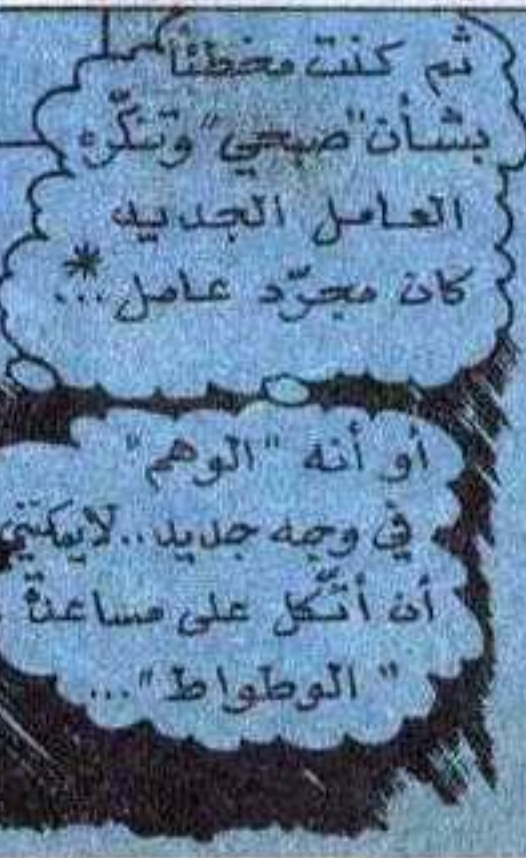 ثم كنت مخطئاً
بشأن "صبحي" وتنكّره
العامل الجديد
كان مجرّد عامل...*
أو أنه "الوهم"
في وجه جديد.. لايمكنني
أن أتّكل على مساعدة
"الوطواط"...